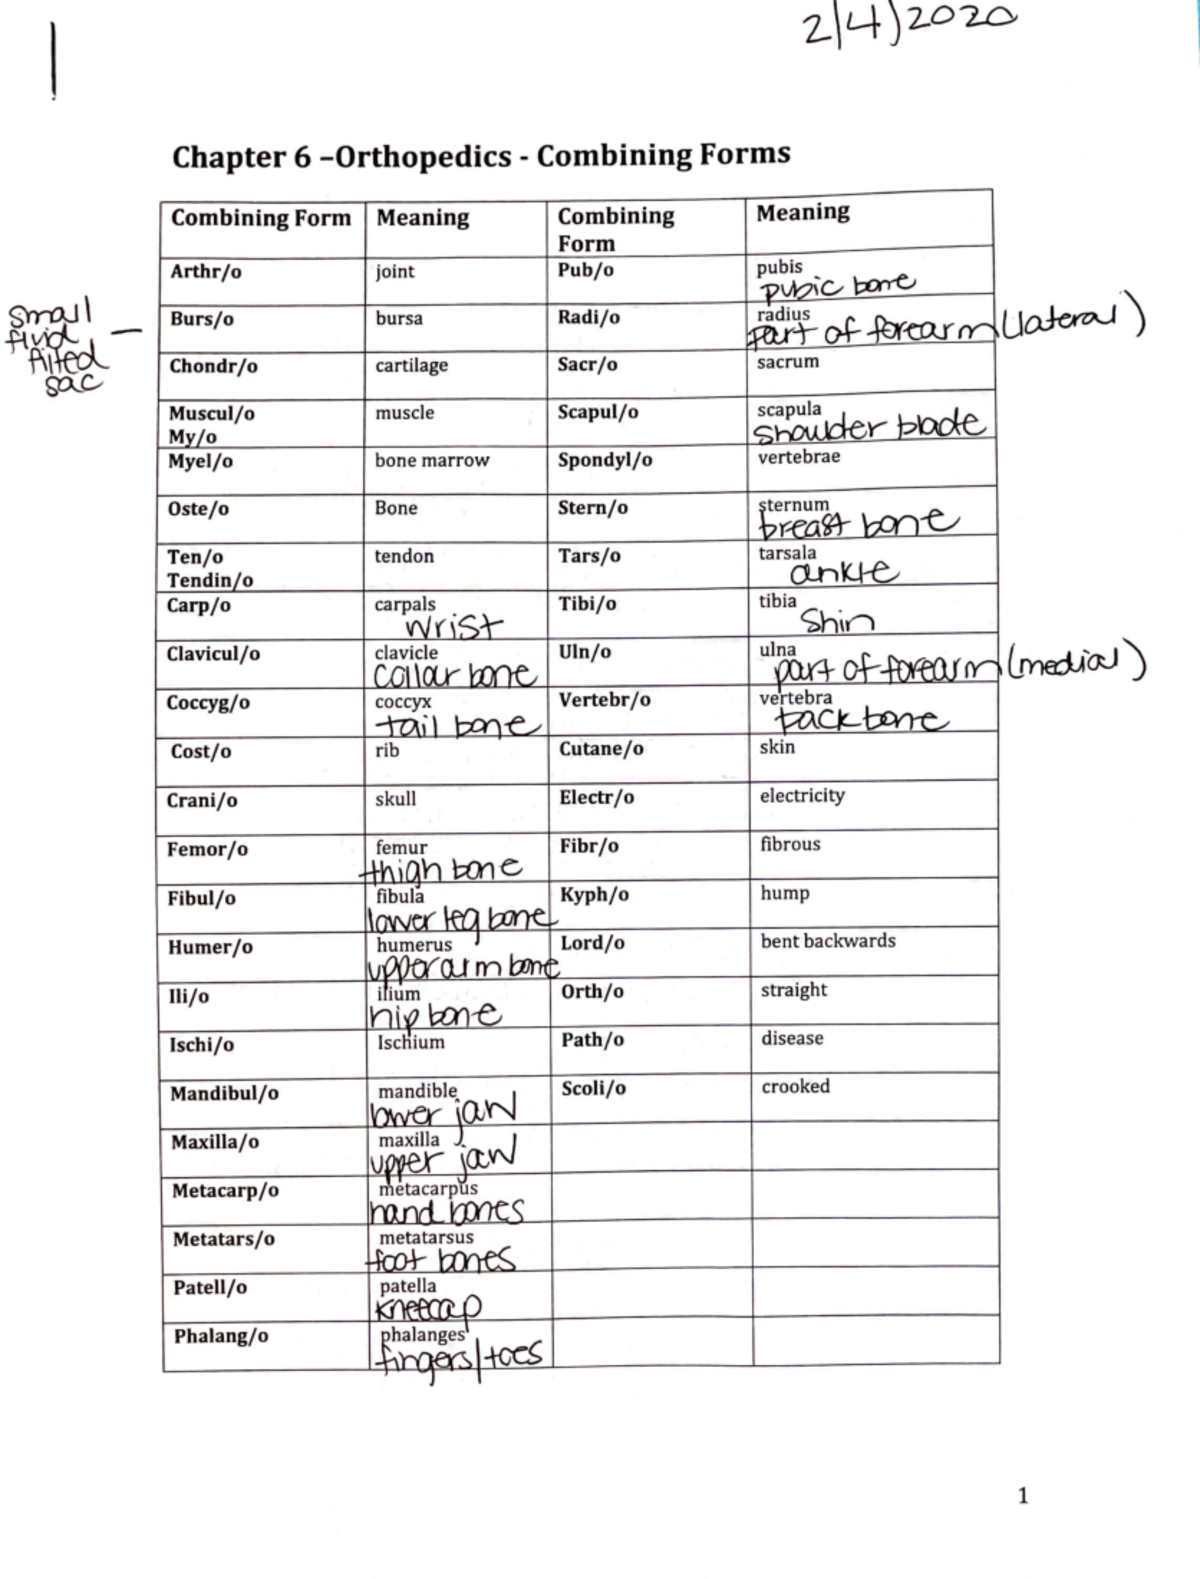 2/4/2020
Chapter 6 –Orthopedics - Combining Forms
Combining Form Meaning Combining Form Meaning
Arthr/o joint Pub/o pubis
pubic bone
small fluid filled sac — Burs/o bursa Radi/o radius
part of forearm (lateral)
Chondr/o cartilage Sacr/o sacrum
Muscul/o muscle Scapul/o scapula
My/o shoulder blade
Myel/o bone marrow Spondyl/o vertebrae
Oste/o Bone Stern/o sternum
breast bone
Ten/o tendon Tars/o tarsala
Tendin/o ankle
Carp/o carpals Tibi/o tibia
wrist shin
Clavicul/o clavicle Uln/o ulna
collar bone part of forearm (medial)
Coccyg/o coccyx Vertebr/o vertebra
tail bone backbone
Cost/o rib Cutane/o skin
Crani/o skull Electr/o electricity
Femor/o femur Fibr/o fibrous
thigh bone
Fibul/o fibula Kyph/o hump
lower leg bone
Humer/o humerus Lord/o bent backwards
upper arm bone
Ili/o ilium Orth/o straight
hip bone
Ischi/o Ischium Path/o disease
Mandibul/o mandible Scoli/o crooked
lower jaw
Maxilla/o maxilla
upper jaw
Metacarp/o metacarpus
hand bones
Metatars/o metatarsus
foot bones
Patell/o patella
kneecap
Phalang/o phalanges
fingers/toes
1